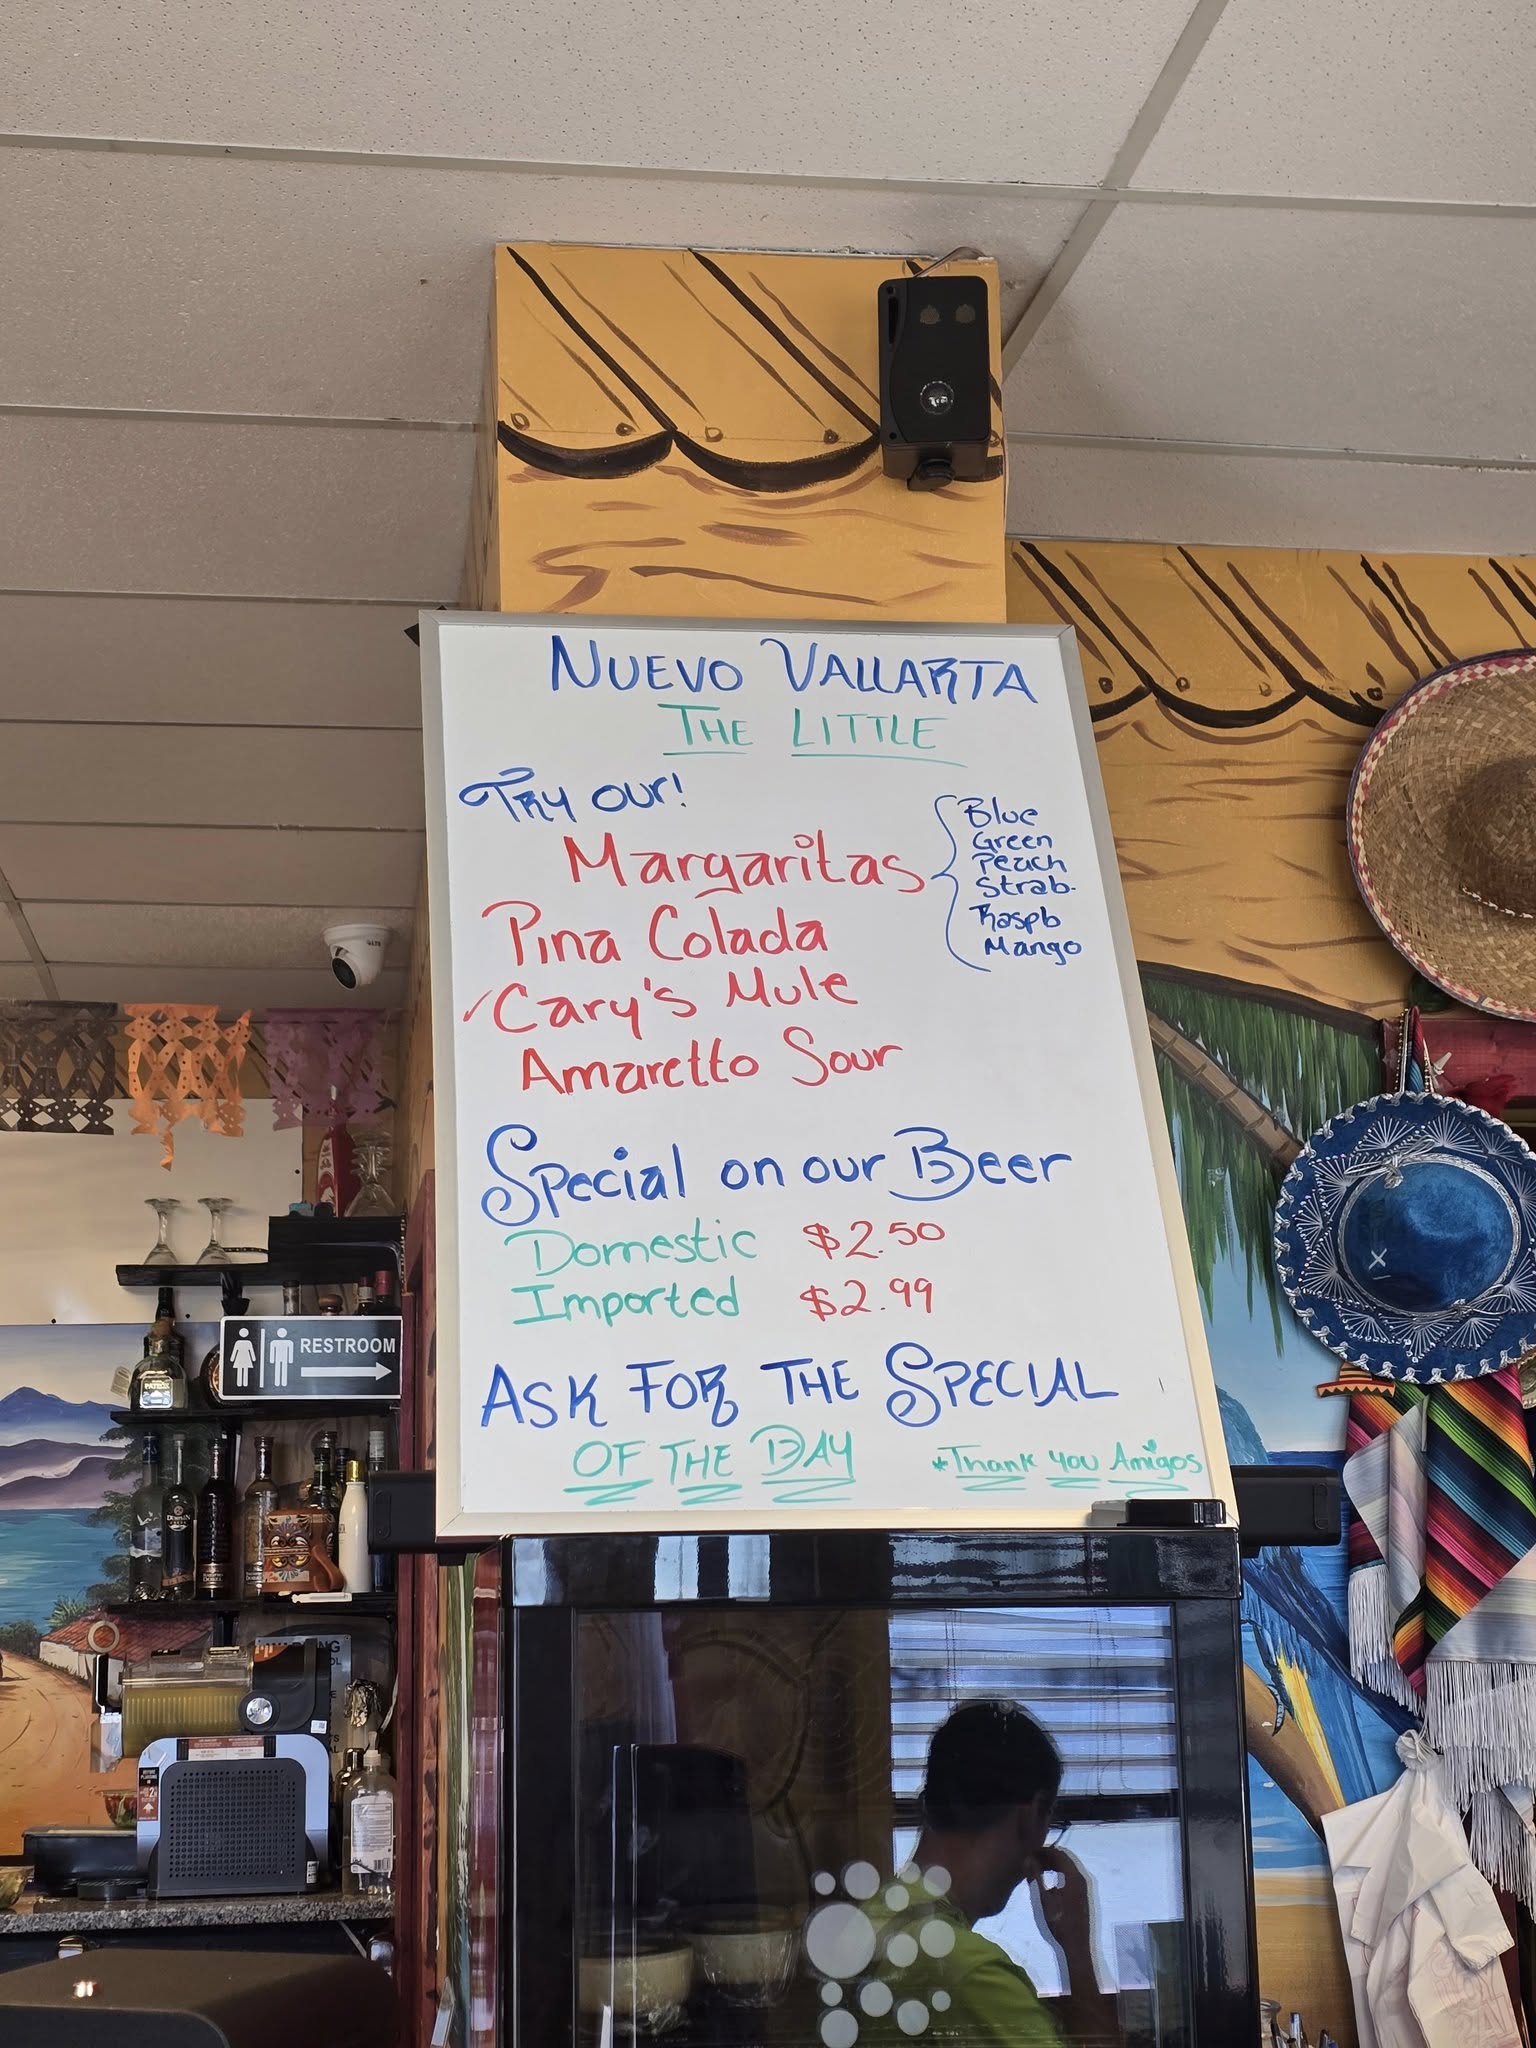 NUEVO VALLARTA
THE LITTLE
TRY OUR!
Margaritas
Blue
Green
Peach
Strab.
Raspb
Mango
Pina Colada
Cary's Mule
Amaretto Sour
Special on our Beer
Domestic $2.50
Imported $2.99
ASK FOR THE SPECIAL
OF THE DAY
*Thank you Amigos
RESTROOM
PATRÓN